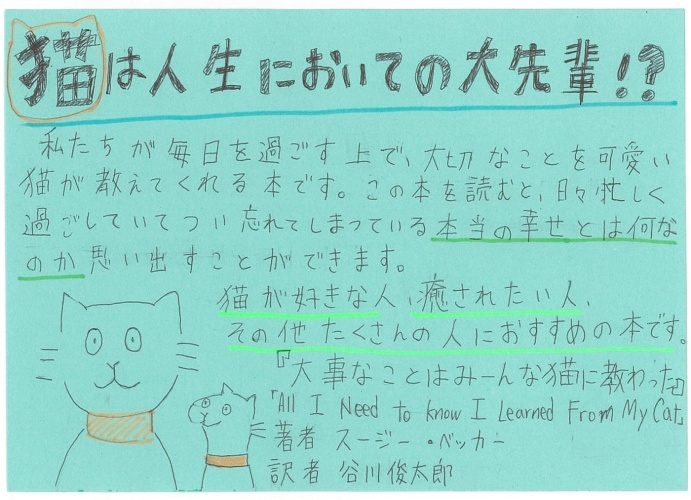 猫は人生においての大先輩!?
私たちが毎日を過ごす上で、大切なことを可愛い
猫が教えてくれる本です。この本を読むと、日々忙しく
過ごしていてつい忘れてしまっている本当の幸せとは何な
のか思い出すことができます。
猫が好きな人、癒されたい人、
その他たくさんの人におすすめの本です。
『大事なことはみーんな猫に教わった』
「All I Need to know I Learned From My Cat」
著者 スージー・ベッカー
訳者 谷川俊太郎